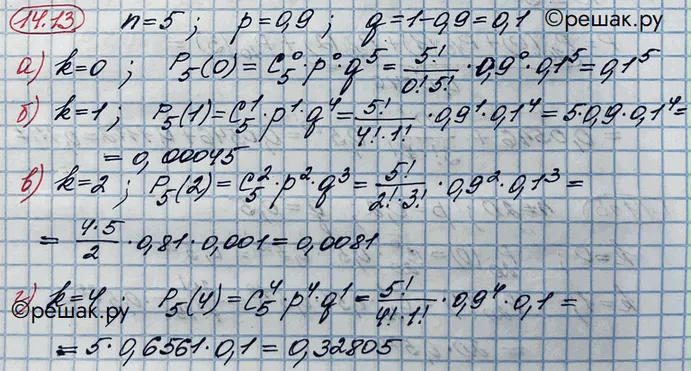 14.13 n=5 ; p=0,9 ; q=1-0,9=0,1 ©решак.ру
а) k=0 ; P₅(0)=C₅⁰·p⁰·q⁵=5!/(0!5!)·0,9⁰·0,1⁵=0,1⁵
б) k=1 ; P₅(1)=C₅¹·p¹·q⁴=5!/(4!·1!)·0,9¹·0,1⁴=5·0,9·0,1⁴=
=0,00045
в) k=2 ; P₅(2)=C₅²·p²·q³=5!/(2!·3!)·0,9²·0,1³=
=(4·5)/2·0,81·0,001=0,0081
г) k=4 ; P₅(4)=C₅⁴·p⁴·q¹=5!/(4!·1!)·0,9⁴·0,1=
©решак.ру
=5·0,6561·0,1=0,32805